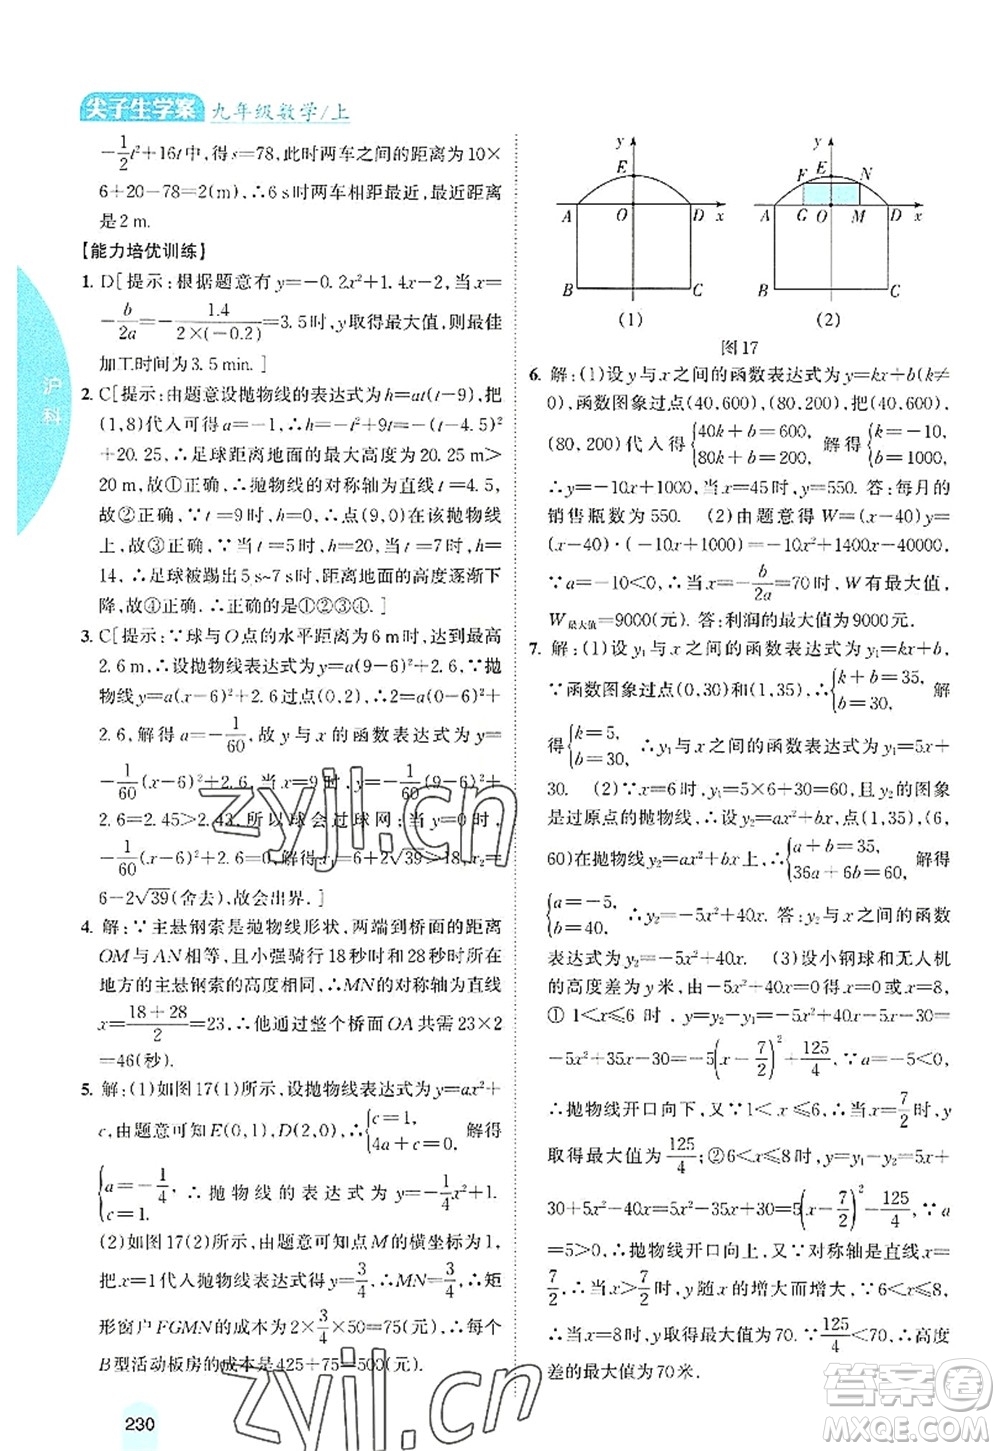 尖子生学案 九年级数学/上
-1/2t²+16t中,得s=78,此时两车之间的距离为10×
6+20-78=2(m),∴6 s时两车相距最近,最近距离
是2 m.
【能力培优训练】
1. D[提示:根据题意有y=-0.2x²+1.4x-2,当x=
-b/2a=-1.4/(2×(-0.2))=3.5时,y取得最大值,则最佳
加工时间为3.5 min.]
2. C[提示:由题意设抛物线的表达式为h=at(t-9),把
(1,8)代入可得a=-1,∴h=-t²+9t=-(t-4.5)²
+20.25,∴足球距离地面的最大高度为20.25 m>
20 m,故①正确,∴抛物线的对称轴为直线t=4.5,
故②正确,∵t=9时,h=0,∴点(9,0)在该抛物线上,
故③正确,∵当t=5时,h=20,当t=7时,h=
14,∴足球被踢出5 s~7 s时,距离地面的高度逐渐下
降,故④正确,∴正确的有①②③④.]
3. C[提示:∵球与O点的水平距离为6 m时,达到最高
2.6 m,∴设抛物线表达式为y=a(x-6)²+2.6,∵抛
物线y=a(x-6)²+2.6过点(0,2),∴2=a(0-6)²+
2.6,解得a=-1/60,故y与x的函数表达式为y=
-1/60(x-6)²+2.6,当x=9时,y=-1/60(9-6)²+
2.6=2.45>2.43,所以球会过球网;当y=0时,
-1/60(x-6)²+2.6=0,解得x₁=6+2√39>18,x₂=
6-2√39(舍去),故会出界.]
4. 解:∵主悬钢索是抛物线形状,两端到桥面的距离
OM与AN相等,且小强骑行18秒时和28秒时所在
地方的主悬钢索的高度相同,∴MN的对称轴为直线
x=(18+28)/2=23,∴他通过整个桥面OA共需23×2
=46(秒).
5. 解:(1)如图17(1)所示,设抛物线表达式为y=ax²+
c,由题意可知E(0,1),D(2,0),∴{c=1, 4a+c=0, 解得
{a=-1/4, c=1. ∴抛物线的表达式为y=-1/4x²+1.
(2)如图17(2)所示,由题意可知点M的横坐标为1,
把x=1代入抛物线表达式得y=3/4,∴MN=3/4,∴矩
形窗户FGMN的成本为2×3/4×50=75(元),∴每个
B型活动板房的成本是425+75=500(元).
y E A O D x B C
(1)
y F E N A G O M D x B C
(2)
图17
6. 解:(1)设y与x之间的函数表达式为y=kx+b(k≠
0),函数图象过点(40,600),(80,200),把(40,600),
(80,200)代入得{40k+b=600, 80k+b=200, 解得{k=-10, b=1000,
∴y=-10x+1000,当x=45时,y=550. 答:每月的
销售瓶数为550. (2)由题意得W=(x-40)y=
(x-40)·(-10x+1000)=-10x²+1400x-40000,
∵a=-10<0,∴当x=-b/2a=70时,W有最大值,
W最大值=9000(元).答:利润的最大值为9000元.
7. 解:(1)设y₁与x之间的函数表达式为y₁=kx+b,
∵函数图象过点(0,30)和(1,35),∴{k+b=35, b=30, 解
得{k=5, b=30, ∴y₁与x之间的函数表达式为y₁=5x+
30. (2)∵x=6时,y₁=5×6+30=60,∵y₂的图象
是过原点的抛物线,∴设y₂=ax²+bx,∴点(1,35),(6,
60)在抛物线y₂=ax²+bx上,∴{a+b=35, 36a+6b=60, 解得
{a=-5, b=40, ∴y₂=-5x²+40x. 答:y₂与x的函数表达
式为y₂=-5x²+40x. (3)设小钢球和无人机
的高度差为y米,由-5x²+40x=0得x=0或x=8,
①1<x≤6时,y=y₂-y₁=-5x²+40x-5x-30=
-5x²+35x-30=-5(x-7/2)²+125/4,∵a=-5<0,
∴抛物线开口向下,又∵1<x≤6,∴当x=7/2时,y
取得最大值125/4;②6<x≤8时,y=y₁-y₂=5x+
30+5x²-40x=5x²-35x+30=5(x-7/2)²-125/4,∵
a=5>0,∴抛物线开口向上,∵对称轴为直线x=
7/2,∴当x>7/2时,y随x的增大而增大,∵6<x≤8,
∴当x=8时,y取得最大值70,∵125/4<70,∴高度
差的最大值为70米.
沪科
zyjl.cn
zyjl.cn
答案圈
MXQE.COM
230